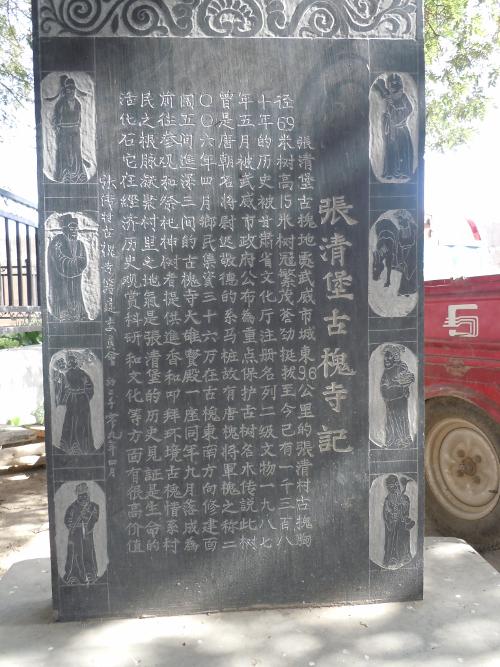 張清堡古槐寺記
張清堡古槐地處武威市城東9.6公里的張清村古槐胸
径6.9米树高15米树冠繁茂苍劲挺拔至今已有一千三百八
十年的历史被甘肃省文化厅注册名列二级文物一九八七
年五月被武威市政府公布為重点保护古树名木传説此树
曾是唐朝名將尉迟敬德的系马桩故有唐槐将軍槐之称二
〇〇六年四月鄉民集資三十六万在古槐東南方向修建面
阔五间進深三间的古槐寺大雄寶殿一座同年九月落成為
前往参观和祭祀神树者提供進香和叩拜环境古槐情系村
民之根脉聚村里之地氣是張清堡的历史見証是生命的
活化石它在經济历史观賞科研和文化等方面有很高价值
张清村古槐寺籌建委員會 零九年四月